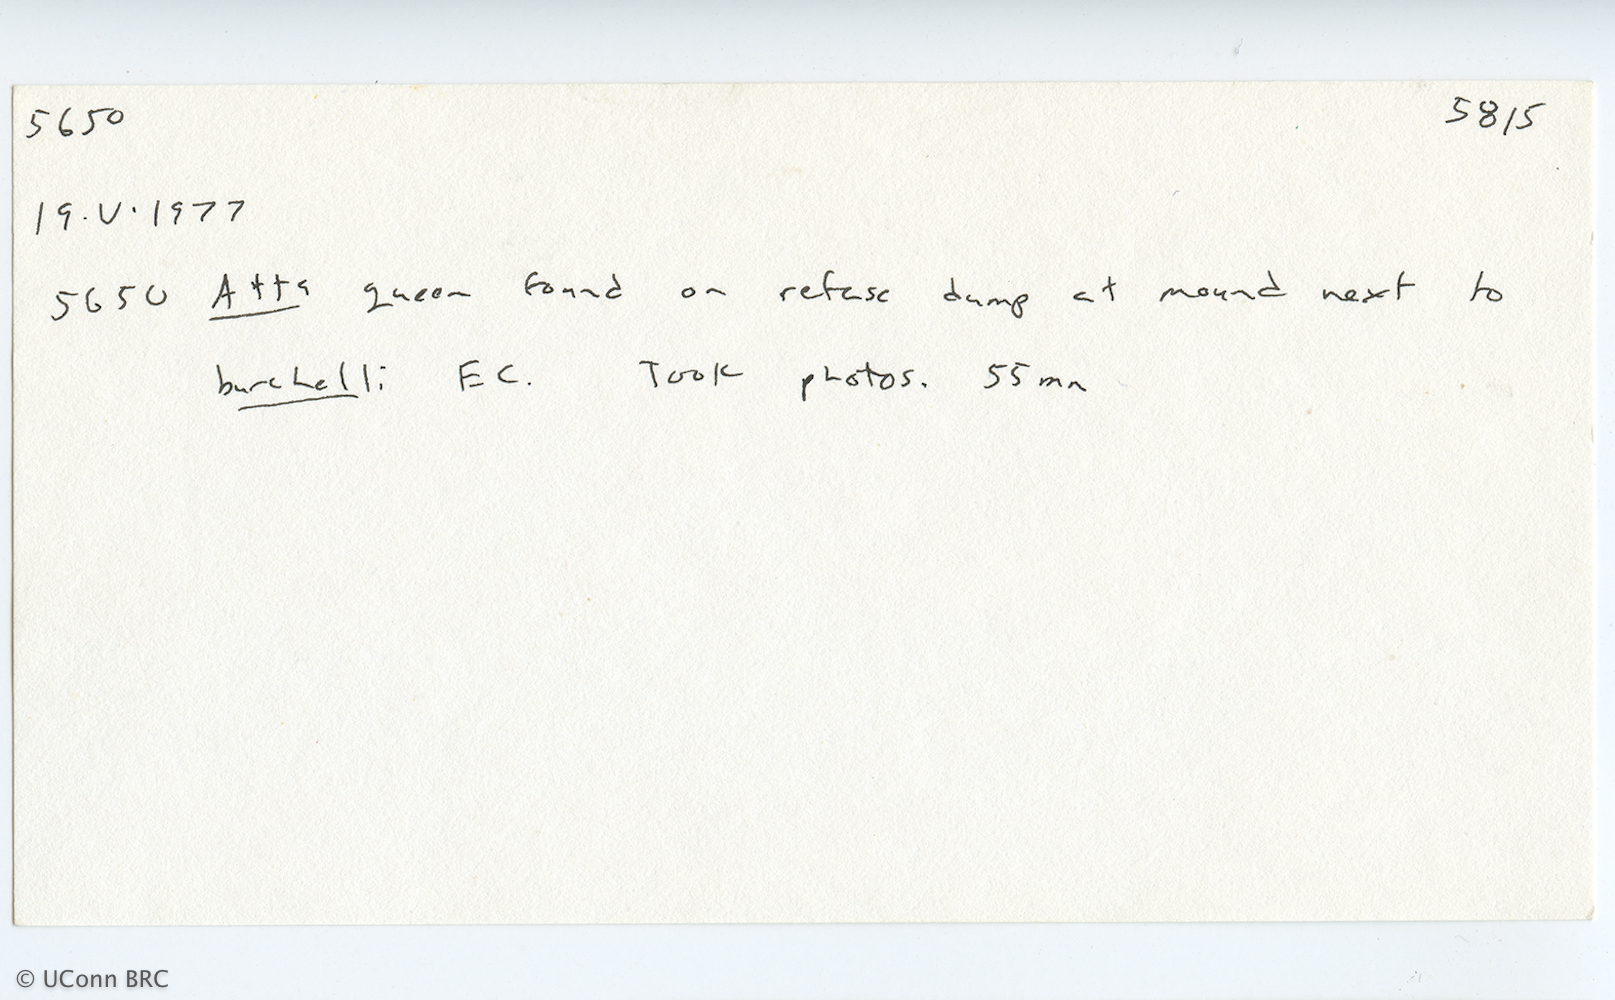 5650 5815
19.V.1977
5650 Atta queen found on refuse dump at mound next to
burchelli E C. Took photos. 55mm
© UConn BRC